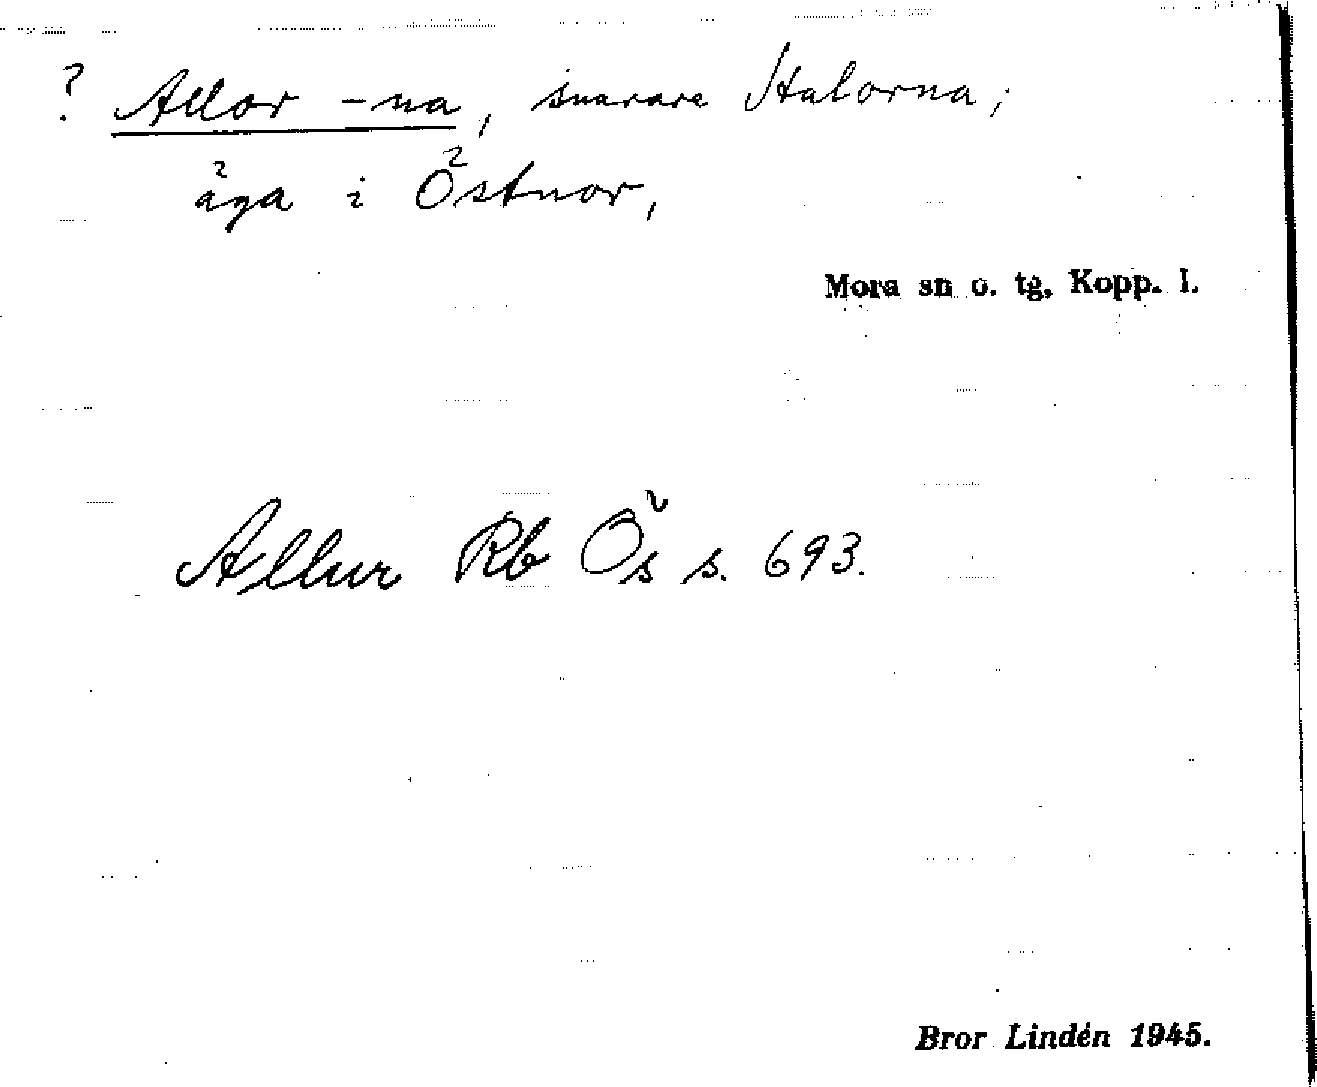 ? Allor -na, snarare Halorna;
äga i Östnor,
Mora sn o. tg, Kopp. l.
Allur Rb Ös s. 693.
Bror Lindén 1945.